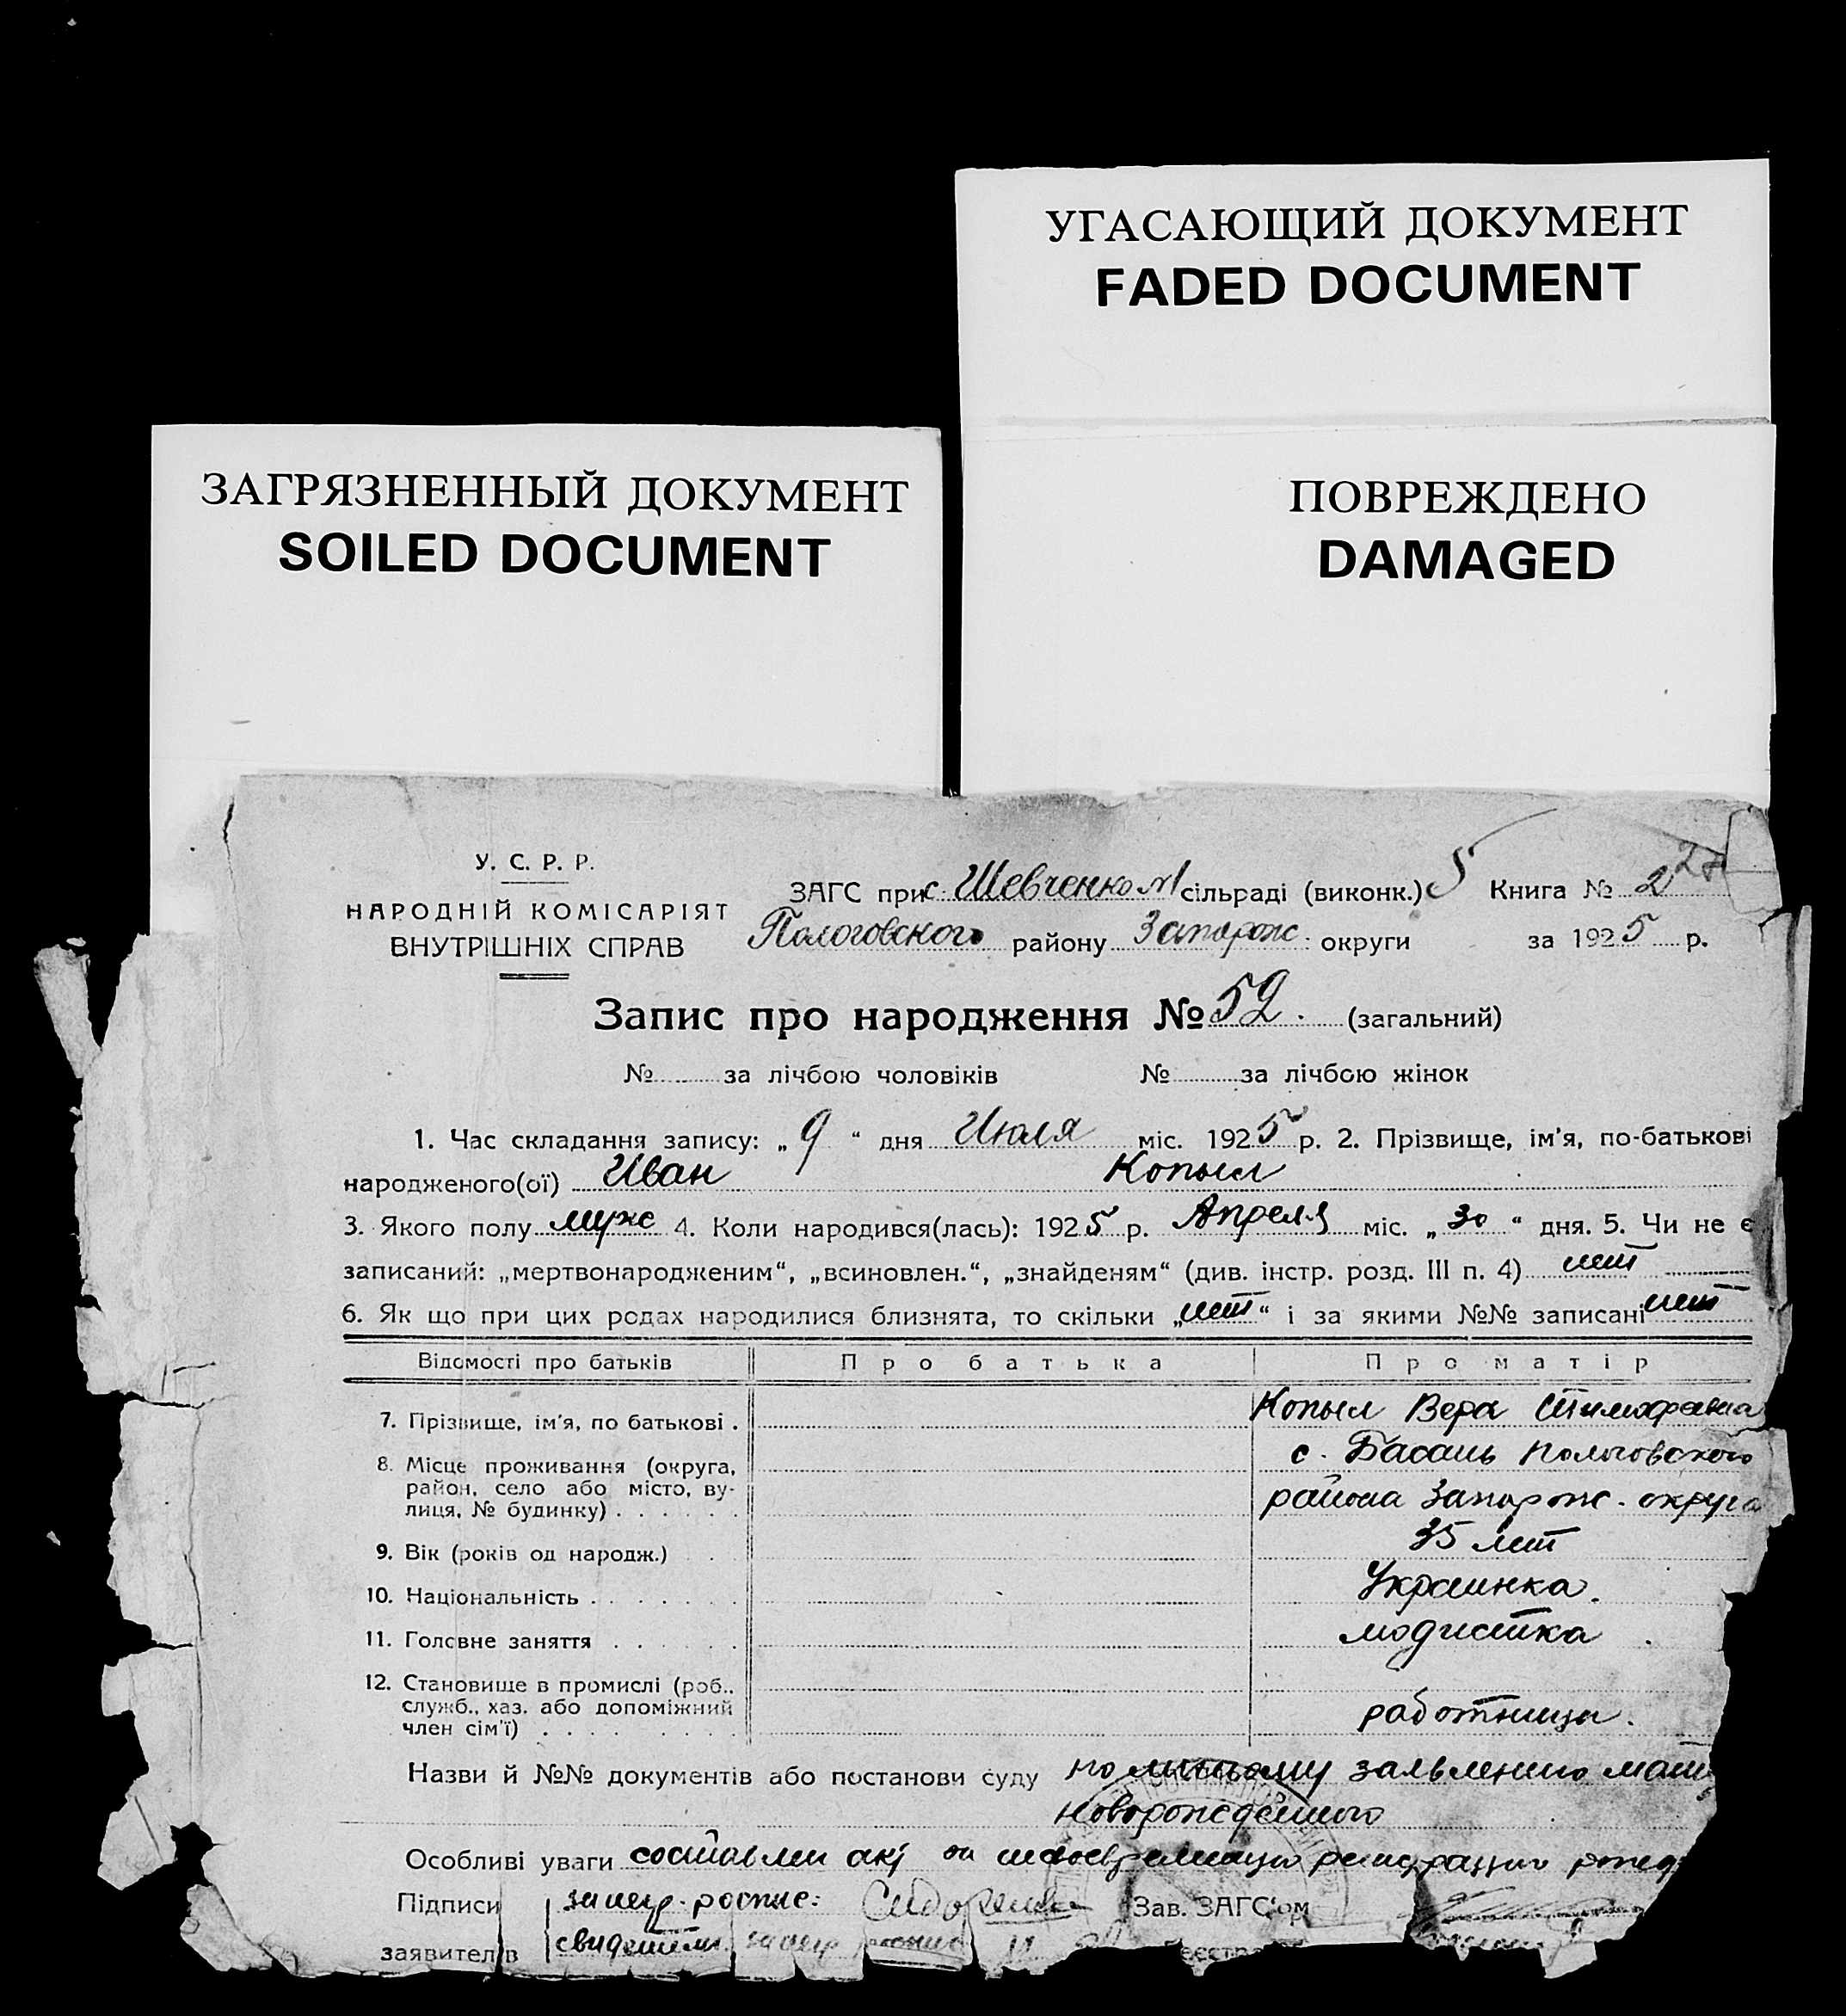 УГАСАЮЩИЙ ДОКУМЕНТ
FADED DOCUMENT
ЗАГРЯЗНЕННЫЙ ДОКУМЕНТ
SOILED DOCUMENT
ПОВРЕЖДЕНО
DAMAGED
У. С. Р. Р.
НАРОДНІЙ КОМІСАРІЯТ
ВНУТРІШНІХ СПРАВ
ЗАГС при с. Шевченко №1 сільраді (виконк.) 5 Книга № 2
Пологовского району Запорож. округи за 1925 р.
Запис про народження № 52. (загальний)
№ за лічбою чоловіків № за лічбою жінок
1. Час складання запису: „9“ дня Июля міс. 1925 р. 2. Прізвище, ім'я, по-батькові
народженого(ої) Иван Копыл
3. Якого полу муж 4. Коли народився(лась): 1925 р. Апреля міс. „30“ дня. 5. Чи не є
записаний: „мертвонародженим“, „всиновлен.“, „знайденям“ (див. інстр. розд. III п. 4) нет
6. Як що при цих родах народилися близнята, то скільки „нет“ і за якими №№ записані нет
Відомості про батьків Про батька Про матір
7. Прізвище, ім'я, по батькові . Копыл Вера Тимофеевна
8. Місце проживання (округа, с. Басань Пологовского
район, село або місто, ву- района Запорож. округа
лиця, № будинку) . . . . . .
9. Вік (років од народж.) . . 35 лет
10. Національність . . . . . . . Украинка.
11. Головне заняття . . . . . . модистка .
12. Становище в промислі (роб.,
служб., хаз. або допоміжний работница.
член сім'ї) . . . . . . .
Назви й №№ документів або постанови суду по личному заявлению мат
новорожденного
Особливі уваги составлен акт за несвоевременную регистрацию рожд
Підписи за негр. роспис: Сидоренко Зав. ЗАГС'ом
заявителів свидетели за негр